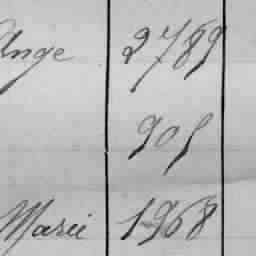 Ange 2789
905
Marie 1968